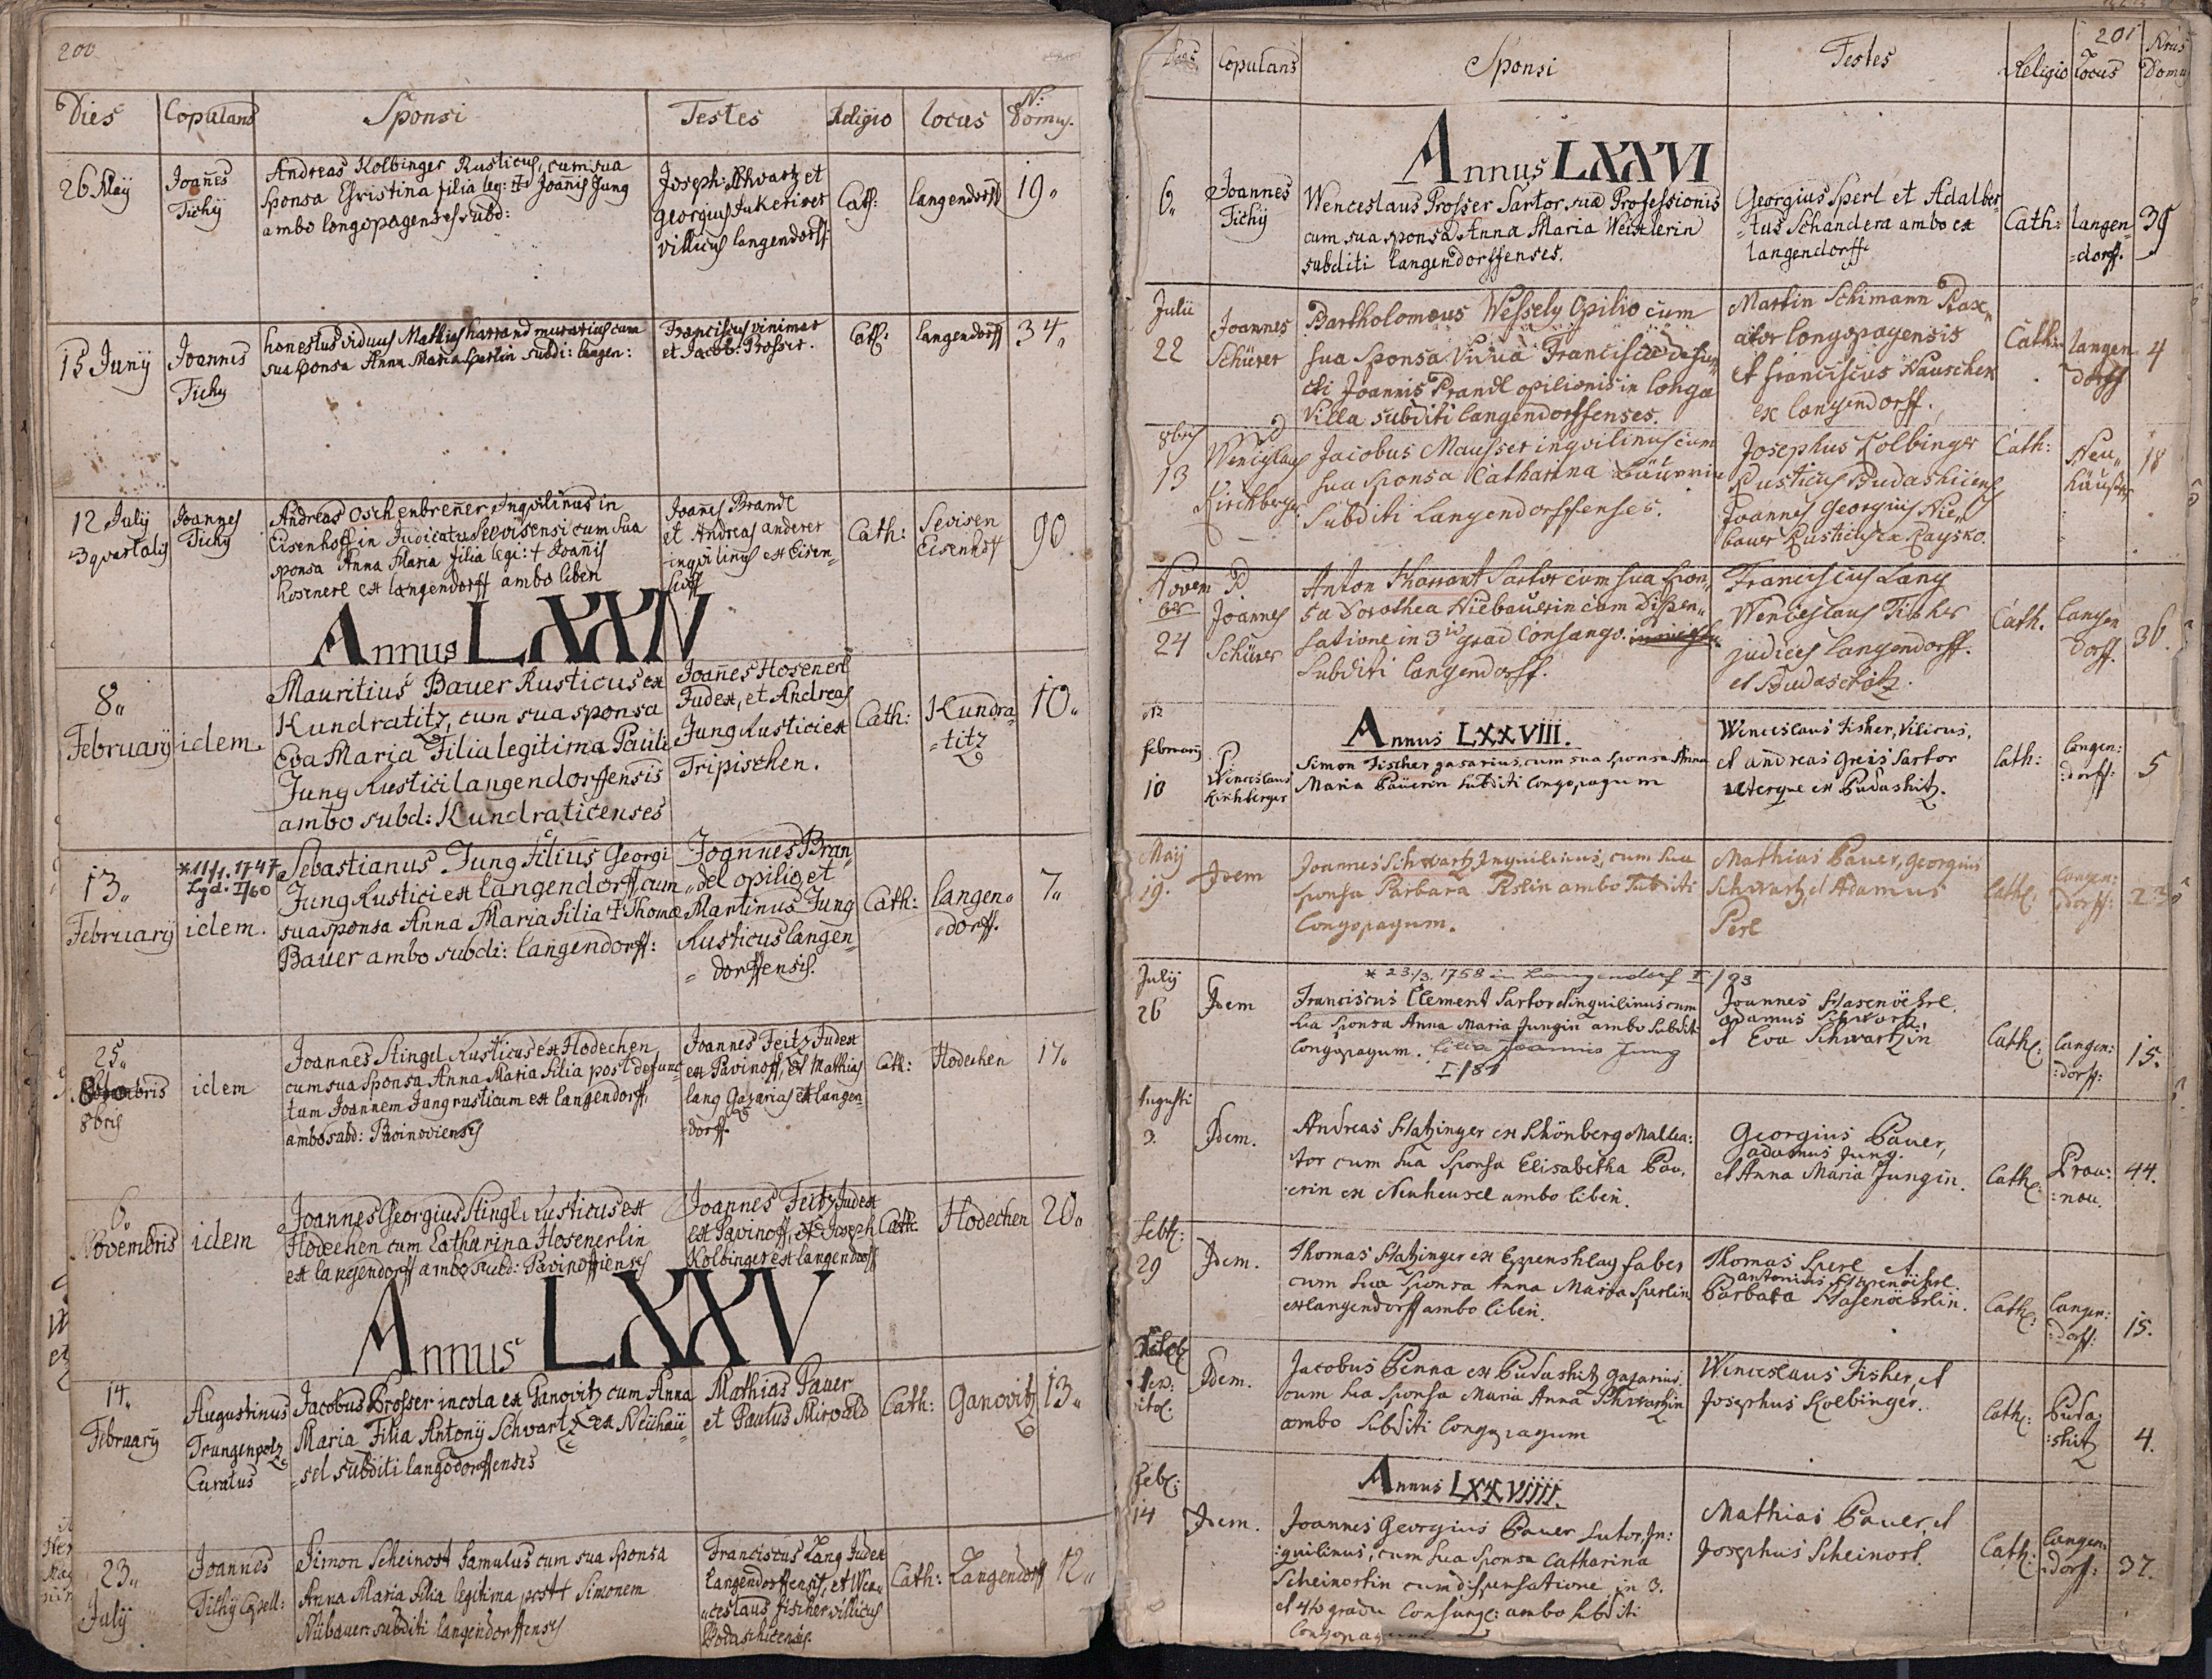 200
Dies Copulans Sponsi Testes Religio Locus N: Domus.
26 Maÿ
Joañes
Tichÿ
Andreas Kolbinger Rusticus, cum sua
Sponsa Christina filia leg: Joañis Jung
ambo longopagenses subd:
Joseph: Schvartz et
Georgius
villicus langendorff
Cath:
langendorff
19"
15 Junÿ
Joannes
Tichy
honestus viduus Mathias harrand murarius cum
sua sponsa Anna Maria Sperlin subdi: langen:
Franciscus vinimar
et Jacob: Prosser.
Cath:
langendorff
34"
12 Julÿ
Joannes
Tichy
Andreas Oschenbreñer Inqvilinus in
Eisenhoff in Judicatu Seevisensi cum sua
sponsa Anna Maria filia legi: † Joañis
hosenerl ex langendorff ambo liberi
Joañes Brandl
et Andreas anderer
inqvilinus ex Eisen
hoff
Cath:
Sevisen
Eisenhoff
90
Annus LXXIV
8"
February
idem.
Mauritius Bauer Rusticus ex
Kundratitz, cum sua sponsa
Eva Maria Filia legitima Pauli
Jung Rustici langendorffensis
ambo subd: Kundraticenses
Joañes Hosenerl
Judex, et Andreas
Jung Rustici ex
Tripischen.
Cath:
Kundra-
=titz
10"
13"
February
*11/1. 1747
Lgd. I/60
idem.
Sebastianus Jung filius Georgi
Jung Rustici ex langendorff cum
sua sponsa Anna Maria filia † Thomæ
Bauer ambo subdi: langendorff:
Joannes Bran"
"del opilio, et
Martinus Jung
Rusticus langen=
=dorffensis.
Cath:
langen"
"dorff.
7"
25"
8bris
idem
Joannes Stingel Rusticus ex Hodechen
cum sua sponsa Anna Maria filia post defunc
tum Joannem Jung rusticum ex langendorff,
ambo subd: Pavinoviensis
Joannes Feitz Judex
ex Pavinoff, et Mathias
lang Gazarius ex langen-
=dorff.
Cath:
Hodechen
17"
6"
Novembris
idem
Joannes Georgius Stingl Rusticus ex
Hodechen cum Catharina Hosenerlin
ex langendorff ambo subd: Pavinoffienses
Joannes Feitz Judex
ex Pavinoff, et Joseph
Kolbinger ex langendorff
Cath:
Hodechen
20"
Annus LXXV
14"
February
Augustinus
Trungenpolz
Curatus
Jacobus Prosser incola ex Ganovitz cum Anna
Maria Filia Antonÿ Schvartz ex Neühaü=
=sel subditi langodorffenses
Mathias Pauer
et Paulus Mirvald
Cath:
Ganovitz
13"
23"
Julÿ
Joannes
Tichÿ Capell:
Simon Scheinost famulus cum sua sponsa
Anna Maria filia legitima post † Simonem
Nübauer subditi langendorffensis
Franciscus Lang Judex
langendorffensis, et Wen"
"ceslaus fischer villicus
Podaschicensis.
Cath:
Langendorff
12"
201
Dies Copulans Sponsi Testes Religio Locus Nrus Domus
Annus LXXVI
6"
Joannes
Tichÿ
Wenceslaus Prosser Sartor suæ Professionis
cum sua sponsa Anna Maria Weislerin
subditi langendorffenses.
Georgius Sperl et Adalber=
=tus Schandera ambo ex
langendorff.
Cath:
langen=
=dorff.
39
Julii
22
Joannes
Schürer
Bartholomæus Wessely Opilio cum
sua Sponsa Vidua Francisca defun"
cti Joannis Prandl opilionis in longa
Villa subditi langendorffenses.
Martin Schimann Pax"
ator longopagensis
et franciscus Hauschek
ex langendorff.
Cath:
langen
dorff
4
8bris
13
P
Wenceslaus
Kirchberger
Jacobus Mausser inqvilinus cum
sua Sponsa Catharina Bäurin
Subditi Langendorffenses.
Josephus Kolbinger
Rusticus Budashicens
Joannes Georgius Nie"
bauer Rusticus ex Raysko.
Cath:
Neu"
häusel
18
Novem
ber
24
P
Joannes
Schürer
Anton Harrant Sartor cum sua Spon"
sa Dorothea Niebauerin cum Dispen"
satione in 3ii grad Consangv.
Subditi Langendorff.
Franciscus Lang
Wenceslaus Fischer
judices langendorff.
et Budaschitz.
Cath.
Langen
dorff.
36.
Annus LXXVIII.
February
10
P:
Winceslaus
Kirchberger
Simon Fischer gazarius, cum sua sponsa Anna
Maria Paürin subditi longopagum
Winceslaus Fisher, vilicus,
et andreas greis sartor
uterque ex Pudashitz.
Cath:
langen:
:dorff:
5
Maÿ
19.
Idem
Joannes Schwartz Inquilinus, cum sua
sponsa Barbara Rslin ambo subditi
longopagum.
Mathias Pauer, georgius
Schwartz, et Adamus
Perl
Cath:
Langen:
:dorff:
23
Julÿ
26
Idem
* 23./3. 1758 in Langendorf I/93
Franciscus Clement sartor et inquilinus cum
sua sponsa Anna Maria Jungin ambo subditi
longopagum. filia Joannis Jung
I/81
Joannes Hasenöhrl.
adamus Schwartz
et Eva Schwartzin
Cath:
langen:
:dorff:
15.
Augusti
3.
Idem.
Andreas Hatzinger ex Schönberg Mallea:
:tor cum sua sponsa Elisabetha Bau,
:erin ex Neuheusel ambo liberi.
Georgius Bauer,
adamus Jung.
et Anna Maria Jungin.
Cath:
Prou:
:nou.
44.
Seb:
29
Idem.
Thomas Hatzinger ex Eppenshlag faber
cum sua sponsa Anna Maria Sperlin
ex langendorff ambo liberi.
Thomas Sperl et
antonius Hasenöhrl
Barbara Hasenöhrlin.
Cath:
langen:
:dorff:
15.
Idem.
Jacobus Penna ex Pudashitz gazarius
cum sua sponsa Maria Anna Schwartzin
ambo subditi longopagum
Winceslaus Fisher, et
Josephus Kolbinger.
Cath:
Puda:
:shitz
4.
Annus LXXVIIII.
Feb:
14
Idem.
Joannes Georgius Bauer sutor, In:
:quilinus, cum sua sponsa Catharina
Scheinostin cum dispensatione in 3.
et 4to gradu Consang: ambo subditi
longopagum
Mathias Bauer, et
Josephus Scheinost.
Cath:
Langen:
:dorf:
37.